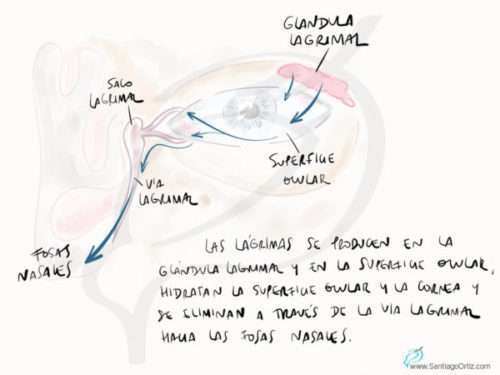 GLÁNDULA
LAGRIMAL
SACO
LAGRIMAL
SUPERFICIE
OCULAR
VÍA
LAGRIMAL
FOSAS
NASALES
LAS LÁGRIMAS SE PRODUCEN EN LA
GLÁNDULA LAGRIMAL Y EN LA SUPERFICIE OCULAR,
HIDRATAN LA SUPERFICIE OCULAR Y LA CORNEA Y
SE ELIMINAN A TRAVÉS DE LA VÍA LAGRIMAL
HACIA LAS FOSAS NASALES.
www.SantiagoOrtiz.com